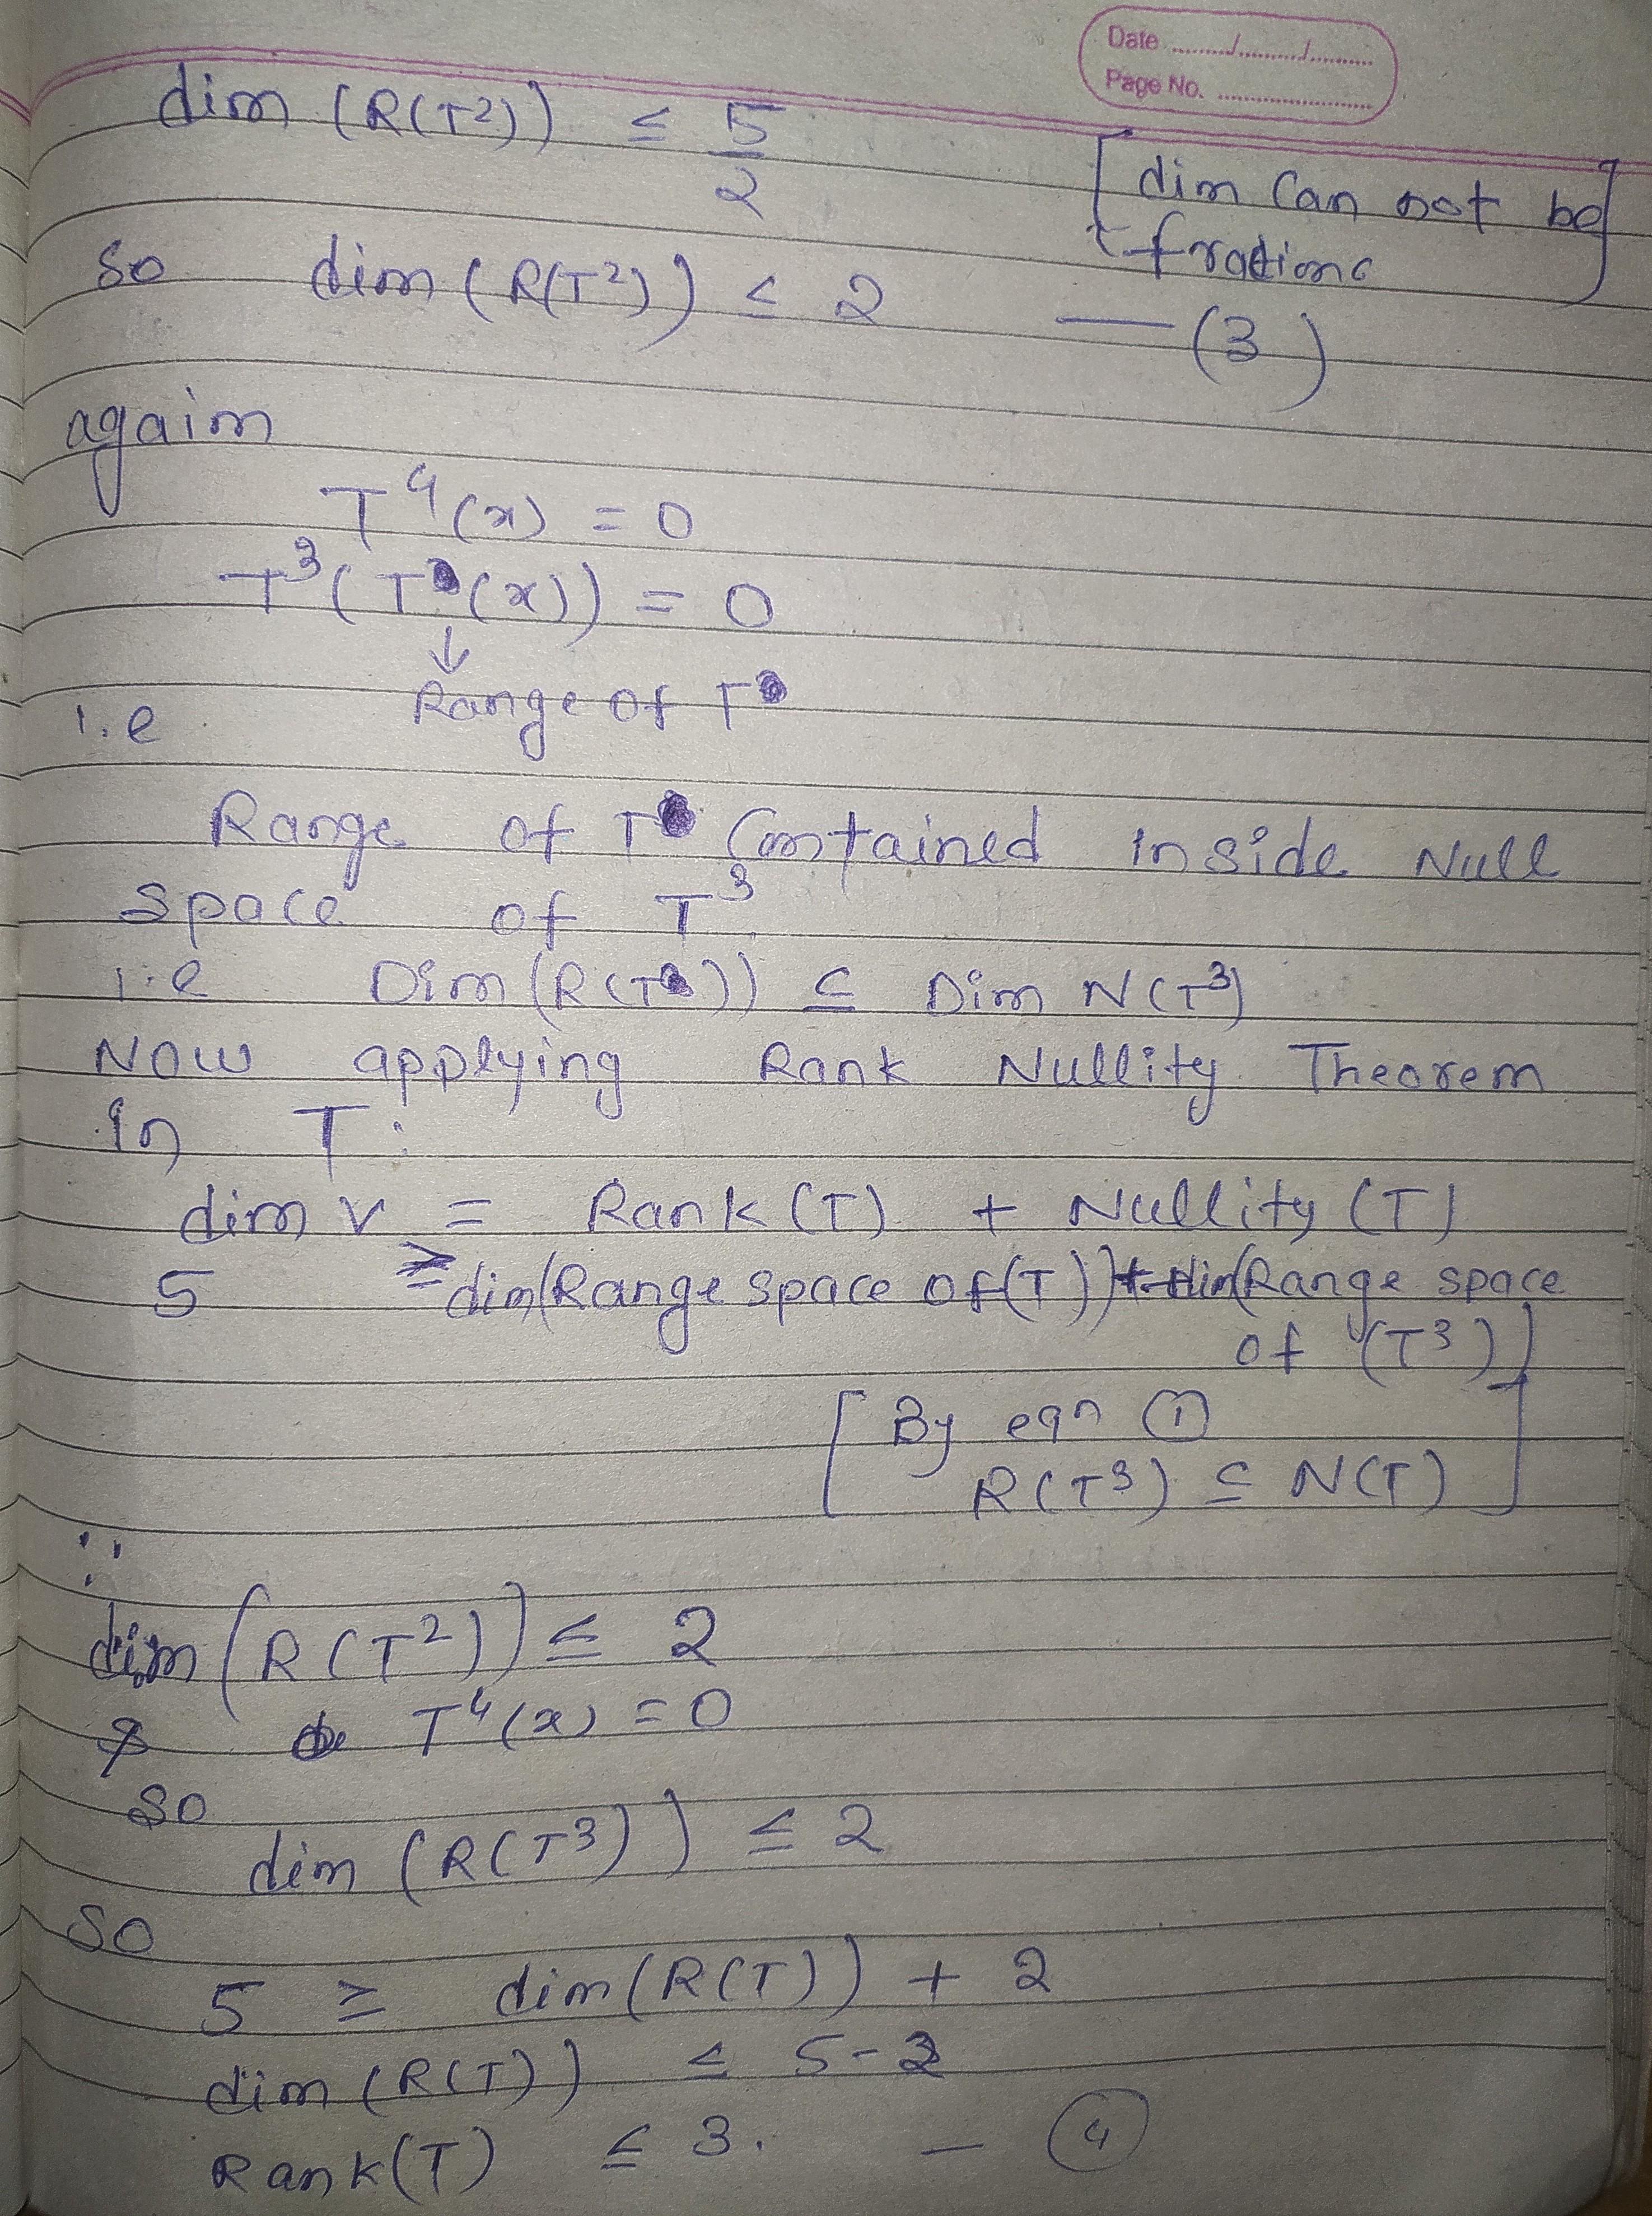 Date ........./........./.........
Page No. ..............................
dim (R(T²)) ≤ 5/2
[dim Can not be frations]
So dim (R(T²)) ≤ 2 — (3)
again
T⁴(x) = 0
T³(T(x)) = 0
↓
i.e Range of T
Range of T Contained inside Null
space of T³
i.e Dim (R(T)) ≤ Dim N(T³)
Now applying Rank Nullity Theorem
in T:
dim V = Rank (T) + Nullity (T)
5 ≥ dim(Range space of (T)) + dim(Range space
of (T³))
[By eqn ①
R(T³) ⊆ N(T)]
∵
dim (R(T²)) ≤ 2
T⁴(x) = 0
SO
dim (R(T³)) ≤ 2
SO
5 ≥ dim(R(T)) + 2
dim (R(T)) ≤ 5-2
Rank(T) ≤ 3. — ④